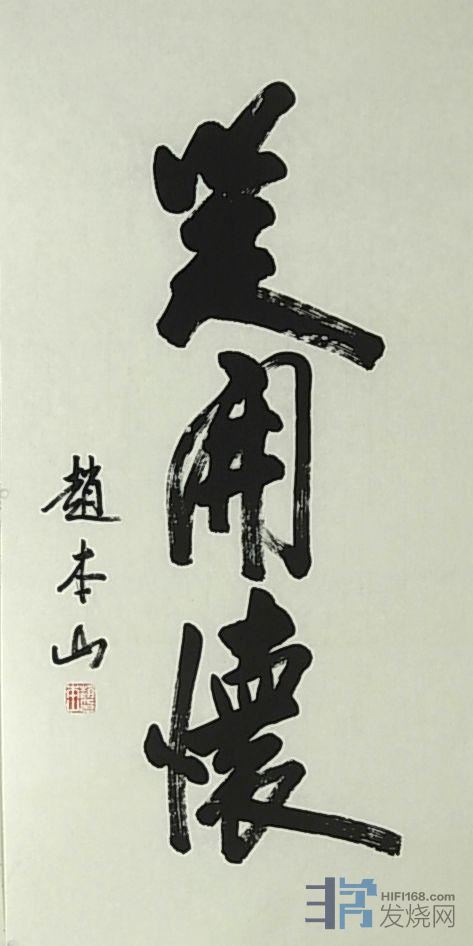 笑開懷
趙本山
HIFI168.com
发烧网